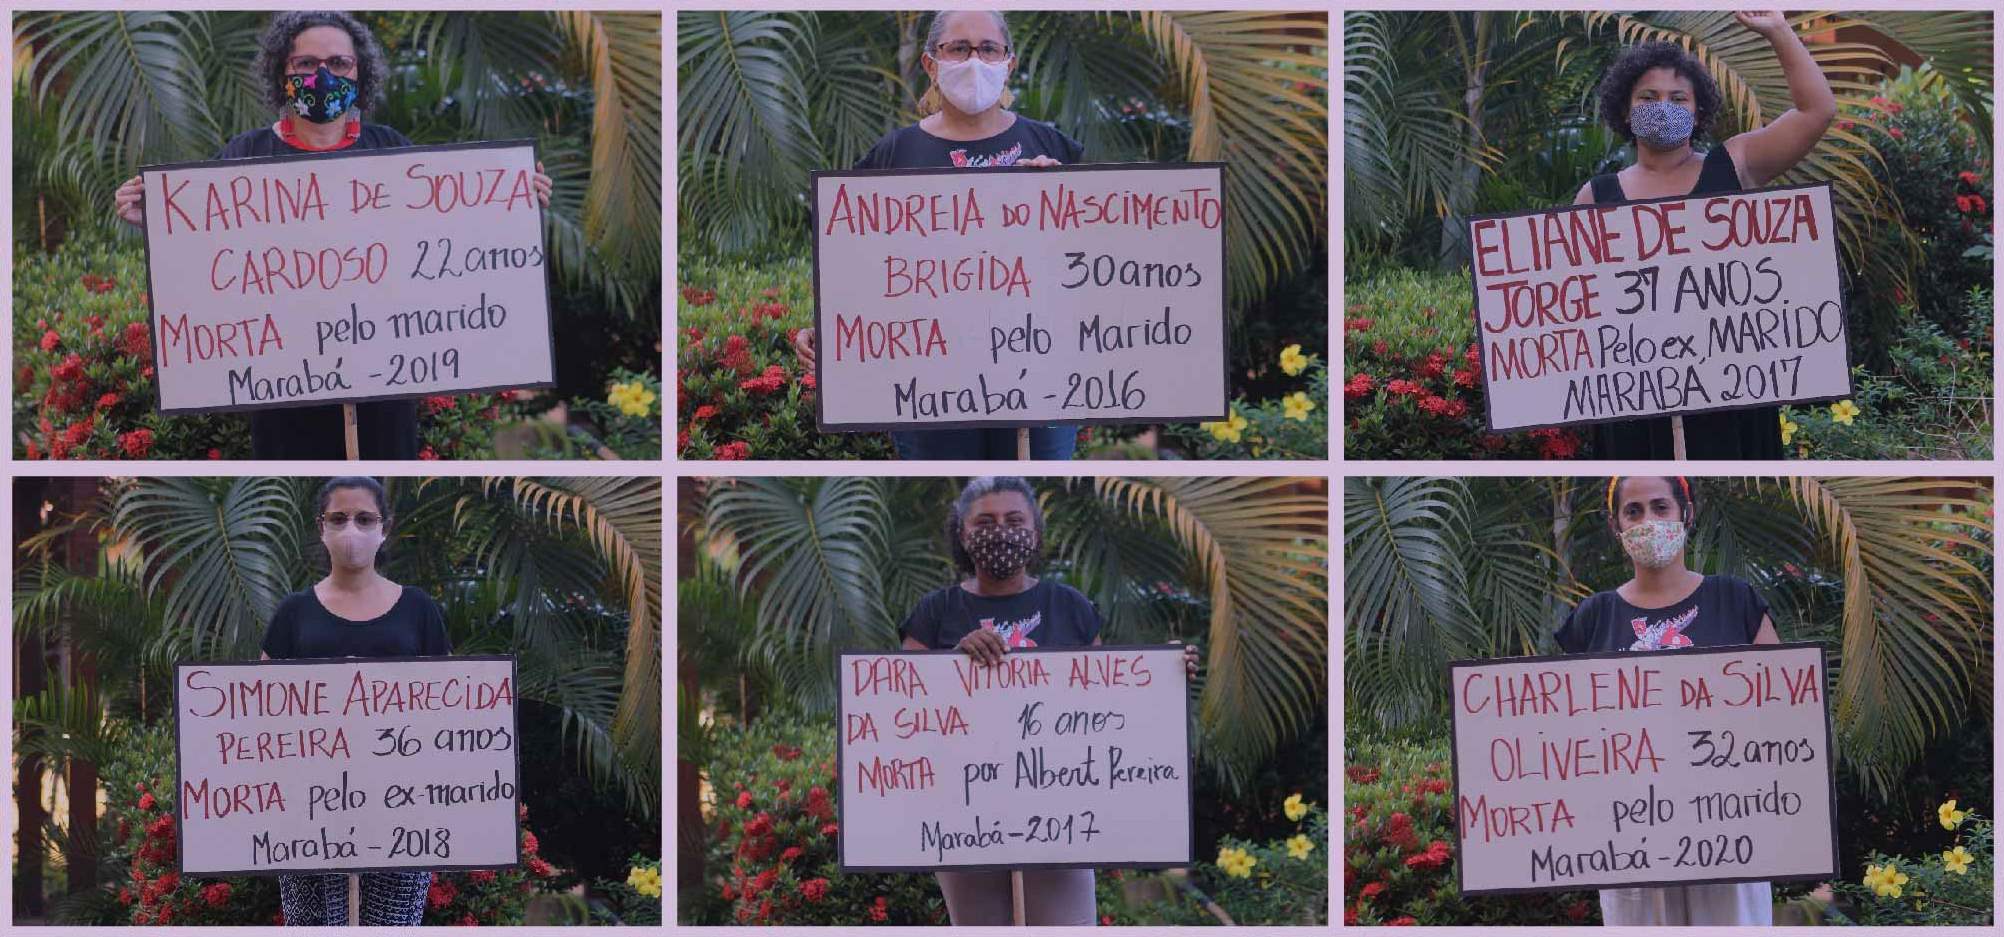 KARINA DE SOUZA
CARDOSO 22 anos
MORTA pelo marido
Marabá - 2019
ANDREIA DO NASCIMENTO
BRIGIDA 30 anos
MORTA pelo Marido
Marabá - 2016
ELIANE DE SOUZA
JORGE 37 ANOS
MORTA Pelo ex, MARIDO
MARABÁ 2017
SIMONE APARECIDA
PEREIRA 36 anos
MORTA pelo ex-marido
Marabá - 2018
DARA VITORIA ALVES
DA SILVA 16 anos
MORTA por Albert Pereira
Marabá - 2017
CHARLENE DA SILVA
OLIVEIRA 32 anos
MORTA pelo marido
Marabá - 2020